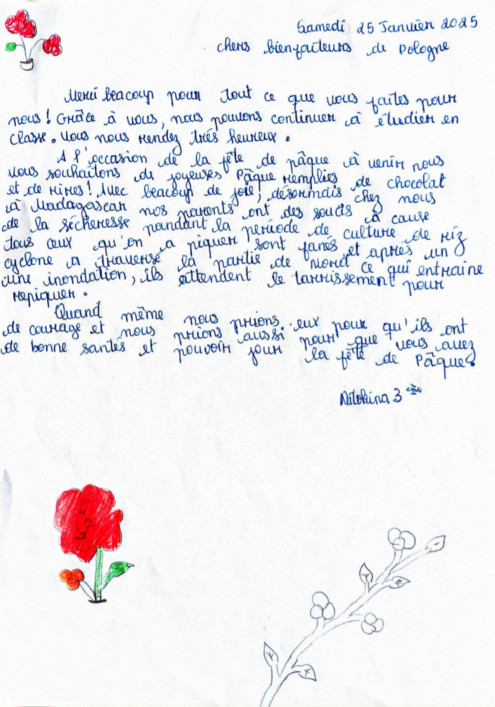 Samedi 25 Janvier 2025
chers bienfaiteurs de Pologne
Merci beacoup pour tout ce que vous faites pour
nous! Grâce à vous, nous pouvons continuer à étudier en
classe. Vous nous rendez très heureux.
A l'occasion de la fête de pâque à venir nous
vous souhaitons de joyeuses Pâque remplies de chocolat
et de rires! Avec beacoup de joie, désormais chez nous
à Madagascar nos parents ont des soucis à cause
de la sécheresse pandant la periode de culture de riz
tous ceux qu'on a piquer sont fanés et après un
cyclone a traversé la partie de Nord ce qui entraine
une inondation, ils attendent le tarrissement pour
repiquer.
Quand même nous prions eux pour qu'ils ont
de courage et nous prions aussi pour que vous avez
de bonne santés et pouvoir jouir la fête de Pâque.
3